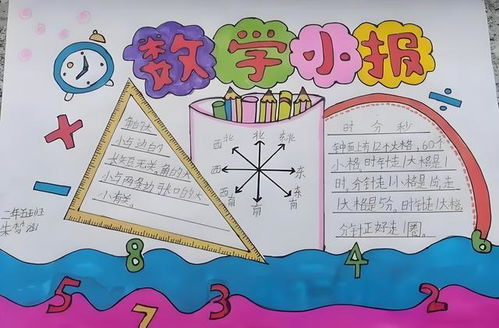 数学小报
角的大
小与边的
长短无关,角的大
小与两条边张口的大
小有关。
西北 北 东北
西 东
西南 南 东南
时 分 秒
钟面上有12个大格,60个
小格,时针走1大格是1
时,分针走1小格是1分,走
1大格是5分,时针走1大格,
分针正好走1圈。
二年五班
朱梦
8
4
6
5
7
3
2